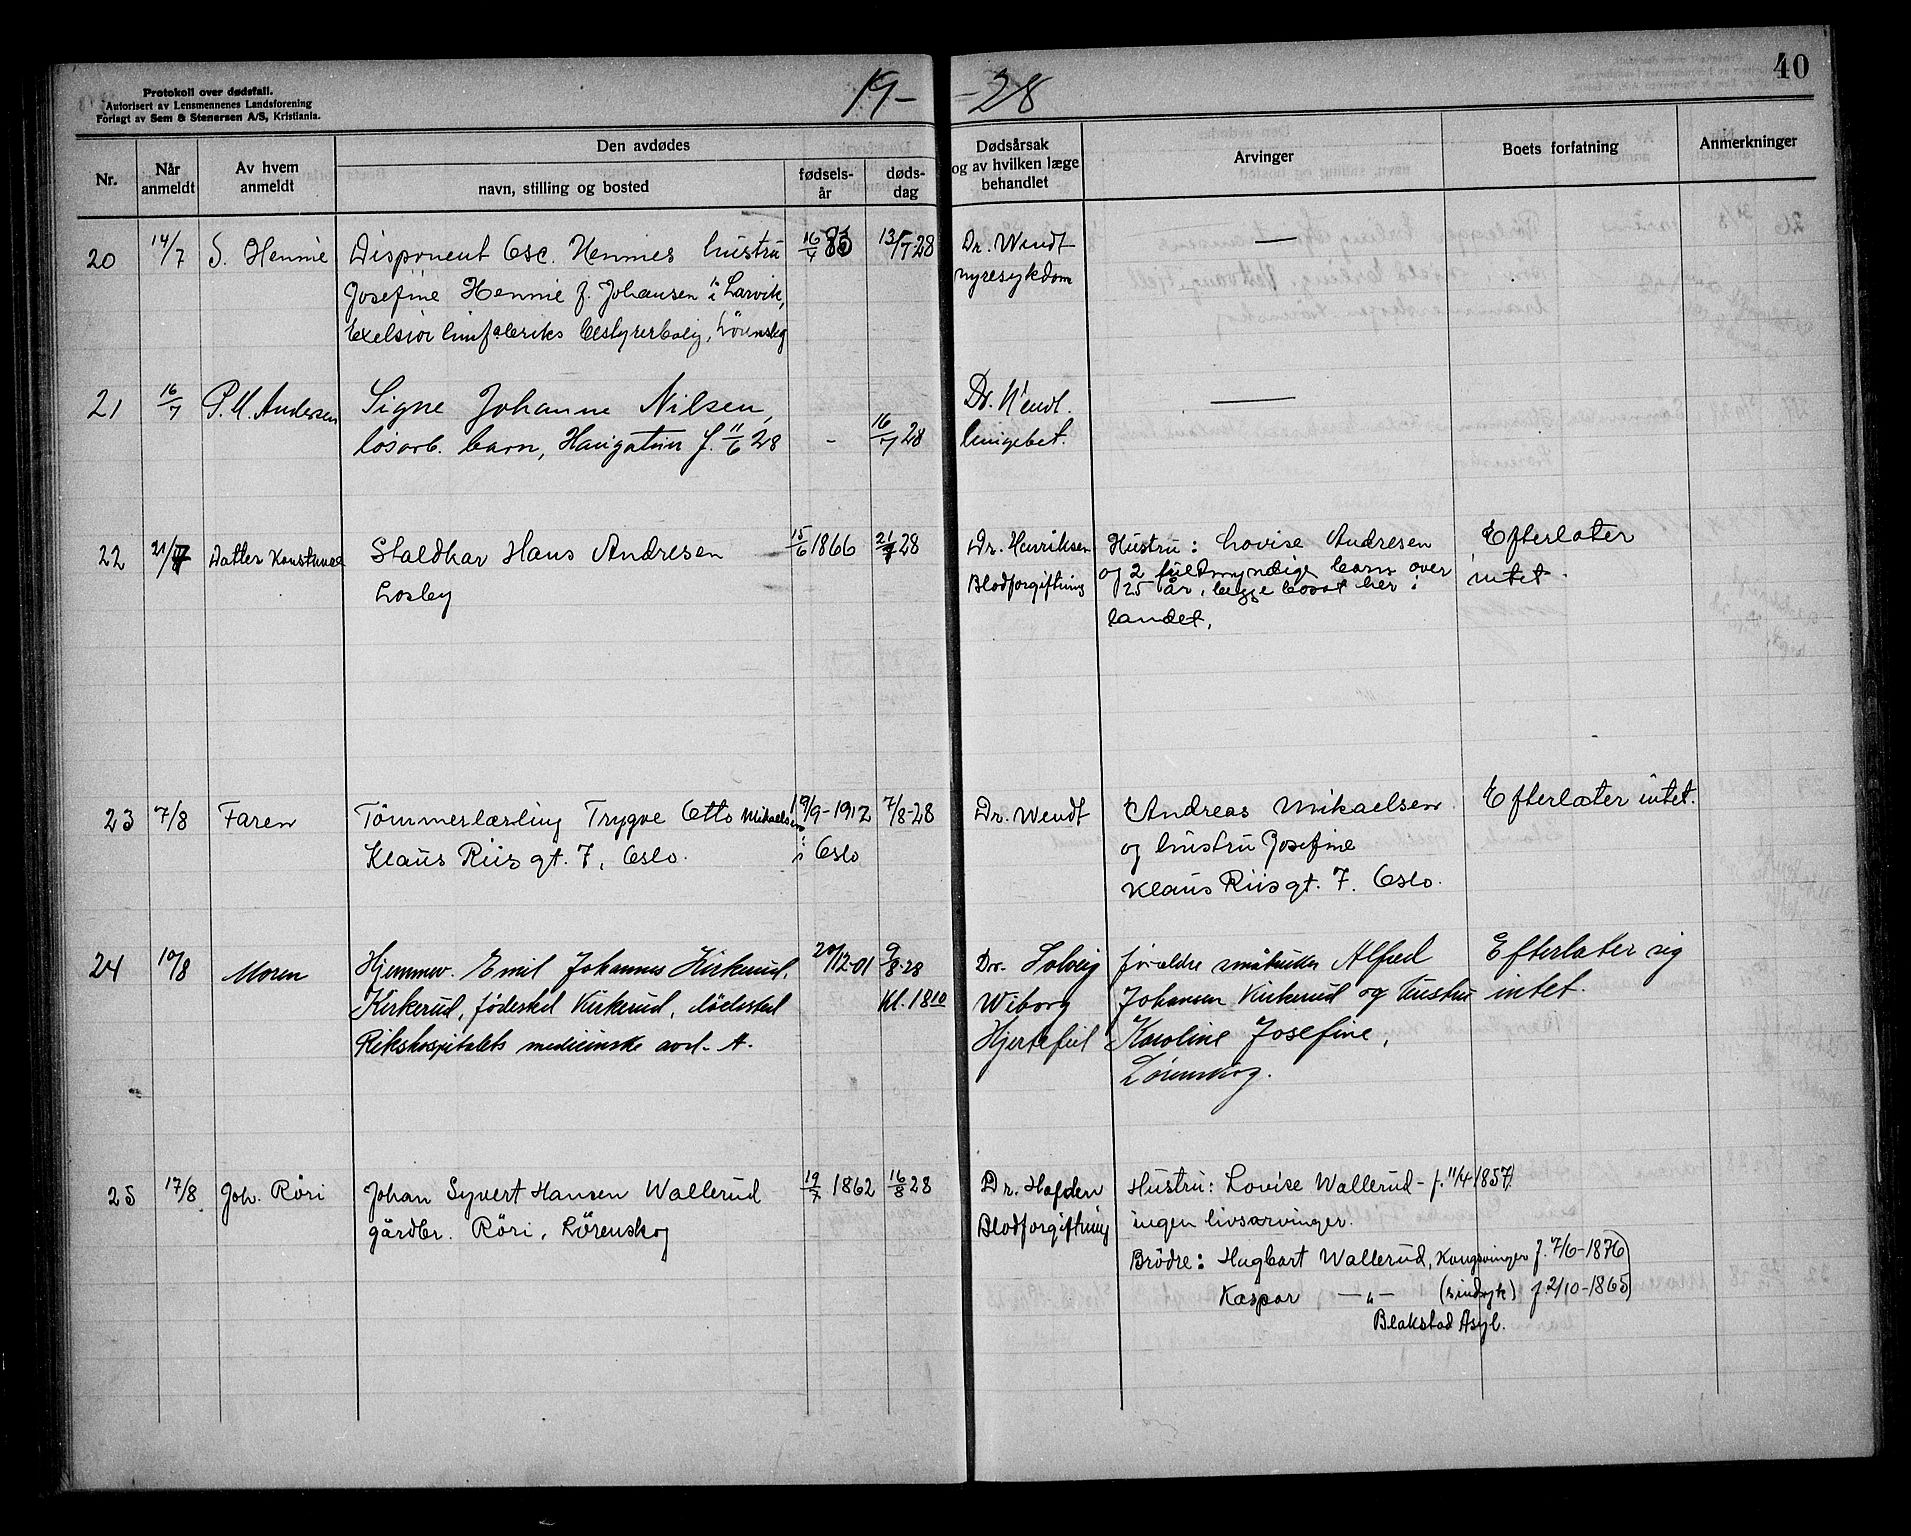 Protokoll over dødsfall.
Autorisert av Lensmennenes Landsforening
Forlagt av Sem & Stenersen A/S, Kristiania.
19- -28
40
Nr.
Når anmeldt
Av hvem anmeldt
Den avdødes
navn, stilling og bosted
fødsels-år
døds-dag
Dødsårsak og av hvilken læge behandlet
Arvinger
Boets forfatning
Anmerkninger
20 14/7 S. Hennie Disponent Osc. Hennies hustru 16/4 13/7-28 Dr. Wendt —
Josefine Hennie f. Johansen i Larvik, nyresykdom
Exelsior limfabriks bestyrerbolig, Lørenskog
21 16/7 P. M. Andersen Signe Johanne Nilsen, Dr. Wendt. —
løsarb. barn, Haugatun f. 11/6 28 - 16/7 28 lungebet.
22 21/7 Datter Konstanse Staldkar Hans Andresen 15/6 1866 21/7 28 Dr. Henriksen Hustru: Lovise Andresen Efterlater
Losby Blodforgiftning og 2 fuldmyndige barn over intet.
25 år, begge bosat her i
landet.
23 7/8 Faren Tömmerlærling Trygve Otto Mikaelsen 19/9-1912 7/8-28 Dr. Wendt Andreas Mikaelsen Efterlater intet.
Klaus Riis gt. 7, Oslo. i Oslo og hustru Josefine
Klaus Riisgt. 7. Oslo.
24 10/8 Moren Hjemmev. Emil Johannes Kirkerud, 20/12-01 9/8-28 Dr. Solveig forældre småbruker Alfred Efterlater sig
Kirkerud, fødested Kirkerud, dødssted Kl. 18 10 Wiborg Johansen Kirkerud og hustru intet.
Rikshospitalets medicinske avd. A. Hjertefeil Karoline Josefine,
Lørenskog.
25 17/8 Joh. Röri Johan Syvert Hansen Wallerud 19/7 1862 16/8 28 Dr. Hofden Hustru: Lovise Wallerud - f. 11/4-1857
gårdbr. Röri, Lörenskog Blodforgiftning ingen livsarvinger.
Brödre: Hagbart Wallerud, Kongsvinger f. 7/6-1876
Kaspar —„— (sindsyk) f. 2/10-1865
Blakstad Asyl.